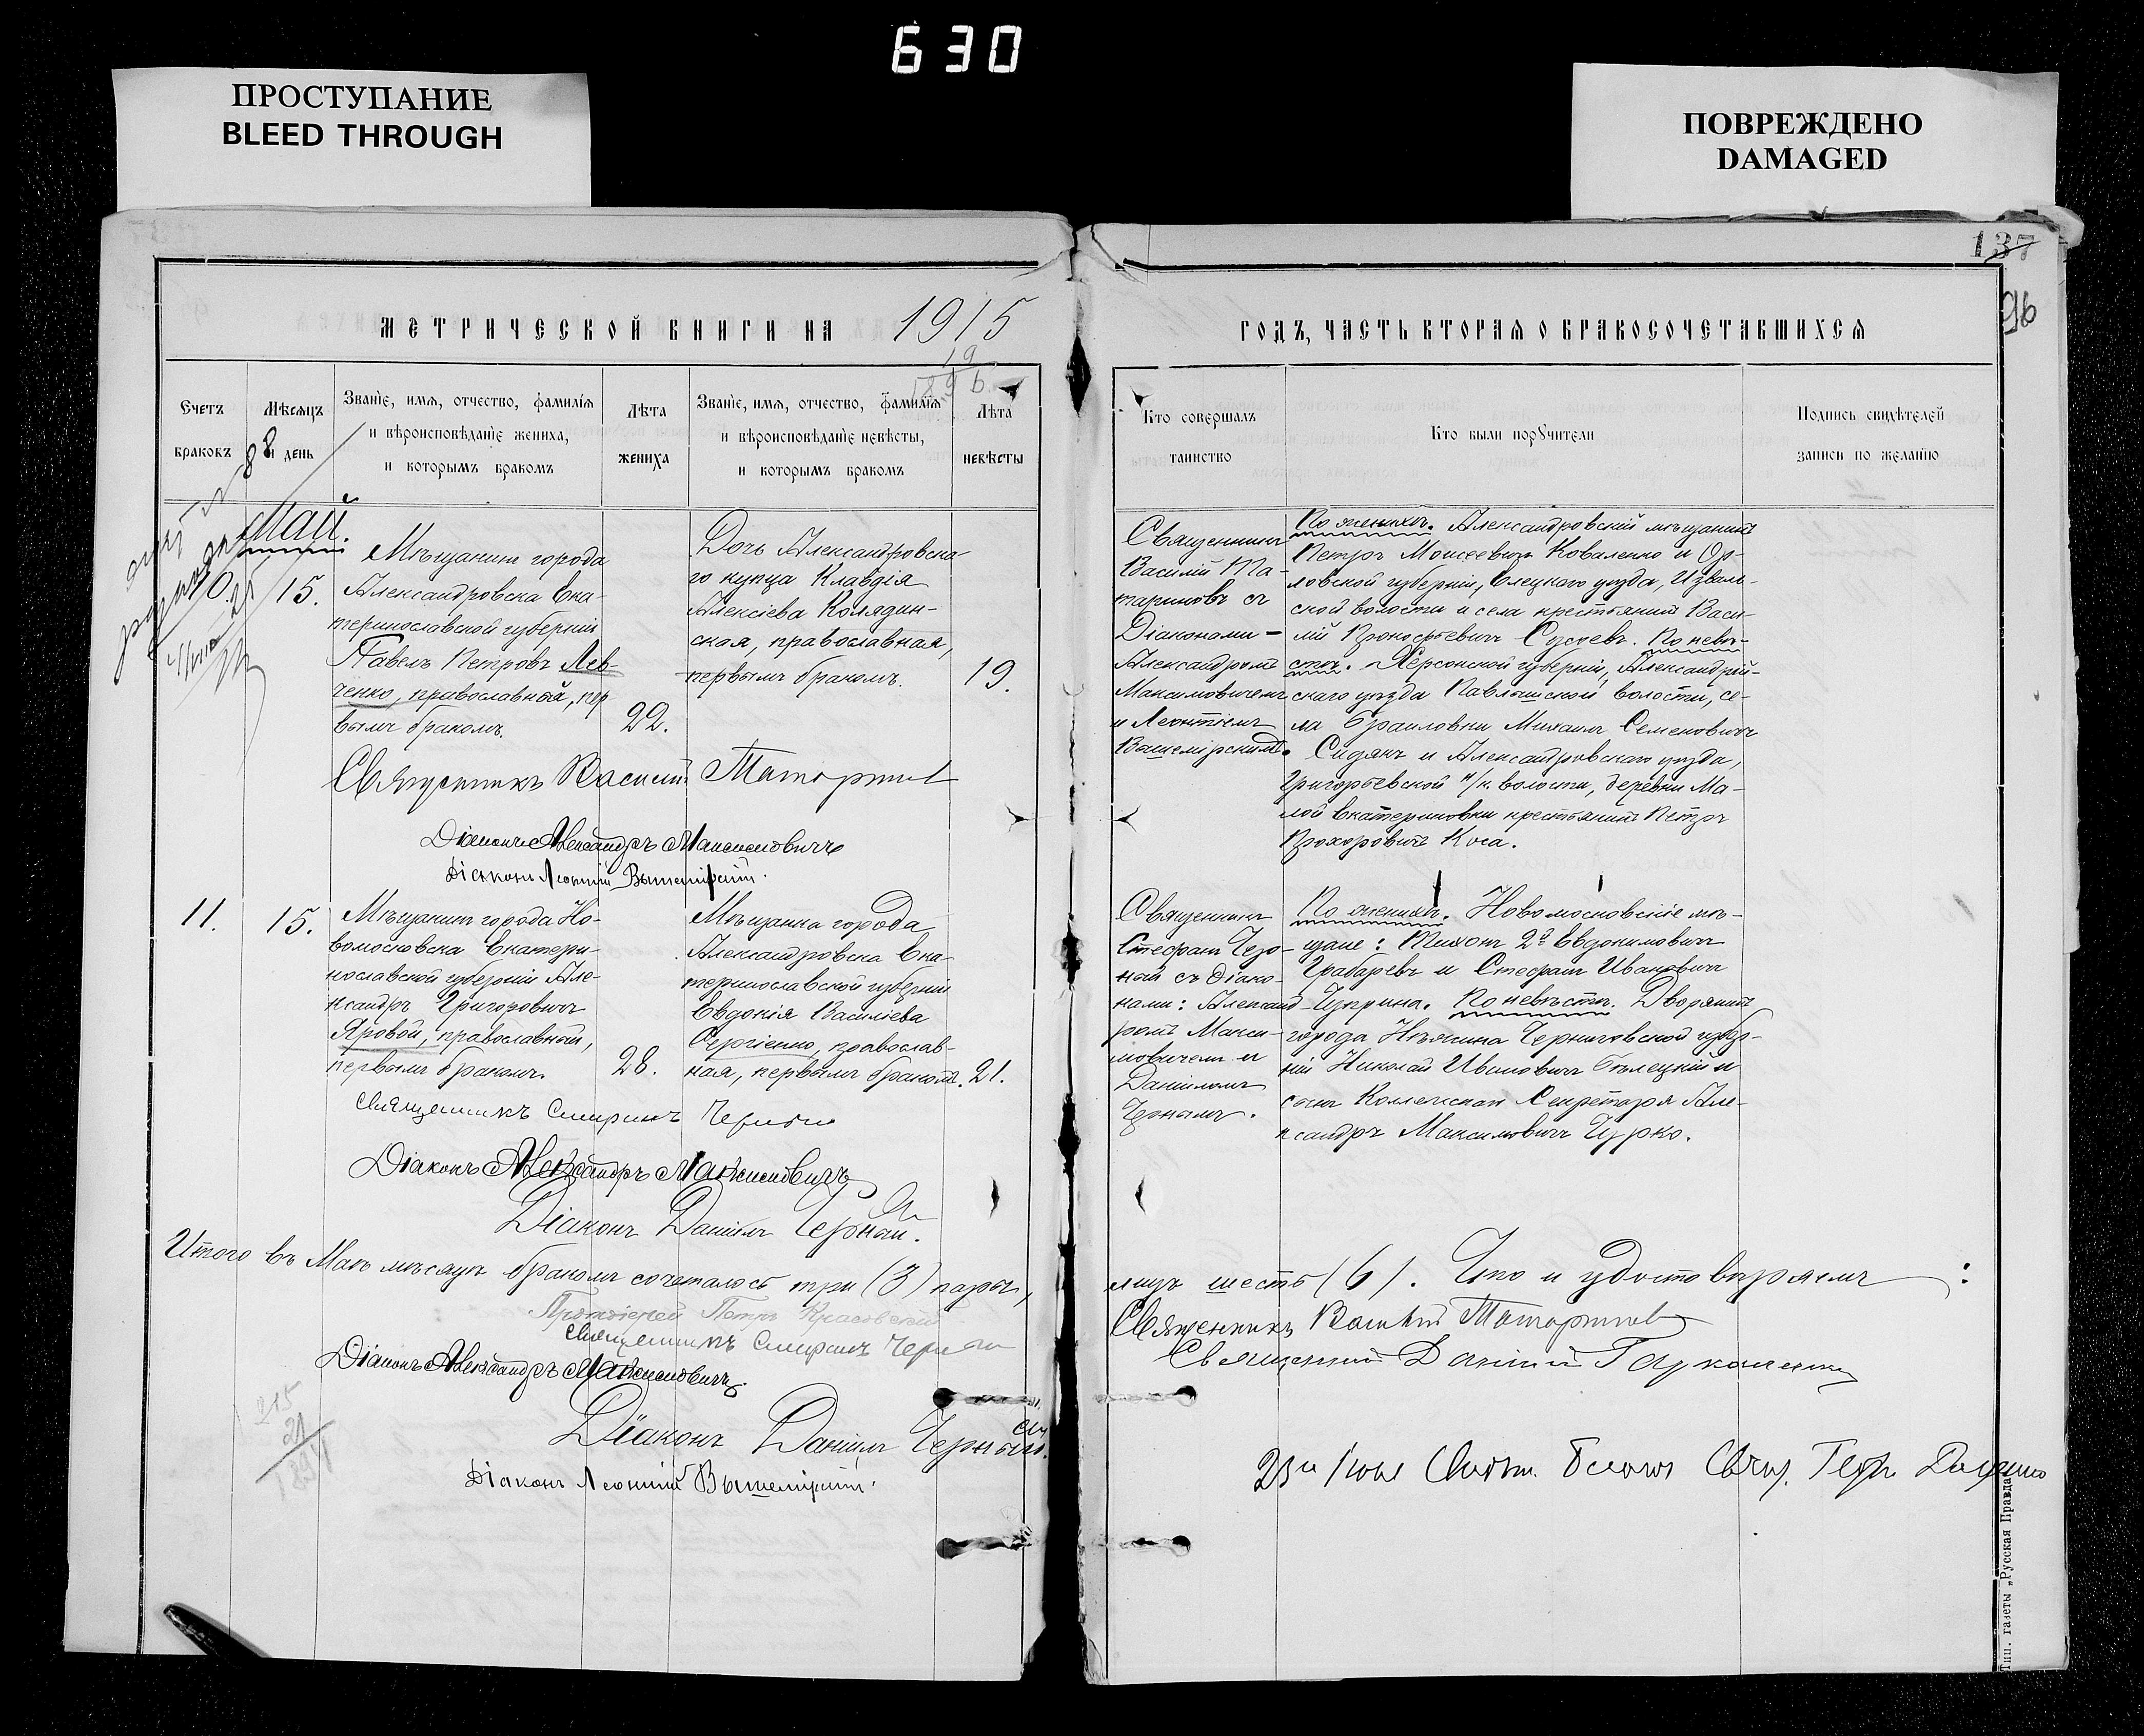 630
ПРОСТУПАНИЕ
BLEED THROUGH
ПОВРЕЖДЕНО
DAMAGED
137
96
МЕТРИЧЕСКОЙ КНИГИ НА 1915
ГОДЪ, ЧАСТЬ ВТОРАЯ О БРАКОСОЧЕТАВШИХСЯ
Счетъ
браковъ
Мѣсяцъ
и день
Званіе, имя, отчество, фамилія
и вѣроисповѣданіе жениха,
и которымъ бракомъ
Лѣта
жениха
Званіе, имя, отчество, фамилія
и вѣроисповѣданіе невѣсты,
и которымъ бракомъ
Лѣта
невѣсты
Кто совершалъ
таинство
Кто были поручители
Подпись свидѣтелей
записи по желанію
Май.
10.
15.
Мѣщанинъ города
Александровска Ека-
теринославской губерніи
Павелъ Петровъ Лев-
ченко, православный, пер
вымъ бракомъ.
22.
Дочь Александровска-
го купца Клавдія
Алексіева Колядин-
ская, православная,
первымъ бракомъ.
19.
Священникъ
Василій Та-
тариновъ съ
Діаконами -
Александромъ
Максимовичемъ
и Леонтіемъ
Вышемірскимъ.
По женихѣ. Александровскій мѣщанинъ
Петръ Моисеевичъ Коваленко и Ор-
ловской губерніи, Елецкаго уѣзда, Изваль-
ской волости и села крестьянинъ Васи-
лій Прокофьевичъ По невѣ-
стѣ. Херсонской губерніи, Александрій-
скаго уѣзда Павлышской волости, се-
ла Браиловки Михаилъ Семеновичъ
Сидякъ и Александровскаго уѣзда,
Григорьевской н/к. волости, деревни Ма-
лой Екатериновки крестьянинъ Петръ
Прохоровичъ Коса.
Священникъ Василій Татариновъ
Діаконъ Александръ Максимовичъ
Діаконъ Леонтій Вышемірскій.
11.
15.
Мѣщанинъ города Но-
вомосковска Екатери-
нославской губерніи Але-
ксандръ Григоровичъ
Яровой, православный,
первымъ бракомъ.
28.
Мѣщанка города
Александровска Ека-
теринославской губерніи
Евдокія Василіева
Сергіенко, православ-
ная, первымъ бракомъ.
21.
Священникъ
Стефанъ Чер-
ный съ діако-
нами: Александ-
ромъ Макси-
мовичемъ и
Даніиломъ
Чернымъ.
По женихѣ. Новомосковскіе мѣ-
щане: Тихонъ 2й Евдокимовичъ
Грабаревъ и Стефанъ Ивановичъ
Чуприна. По невѣстѣ. Дворянинъ
города Нѣжина Черниговской губер-
ніи Николай Ивановичъ Бѣлецкій и
сынъ Коллежскаго Секретаря Але-
ксандръ Максимовичъ Чурко.
Священникъ Стефанъ Черный
Діаконъ Александръ Максимовичъ
Діаконъ Даніилъ Черный.
Итого въ Маѣ мѣсяцѣ бракомъ сочеталось три (3) пары,
лицъ шесть (6). Что и удостовѣряемъ:
Протоіерей Петръ Красовскій
Священникъ Стефанъ Черный
Священникъ Василій Татариновъ
Діаконъ Александръ Максимовичъ
Діаконъ Даніилъ Черный.
Діаконъ Леонтій Вышемірскій.
Тип. газеты „Русская Правда